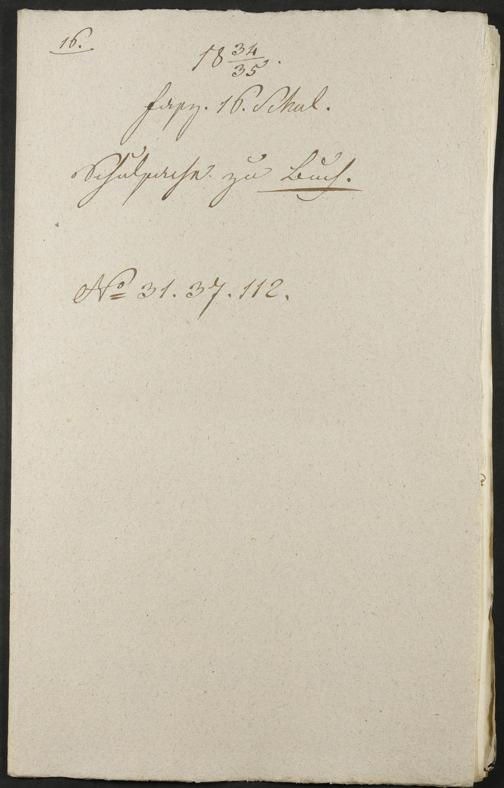 16.
18 34/35.
Fasz. 16. Schul.
Schulsache zu Buch.
No 31. 37. 112.